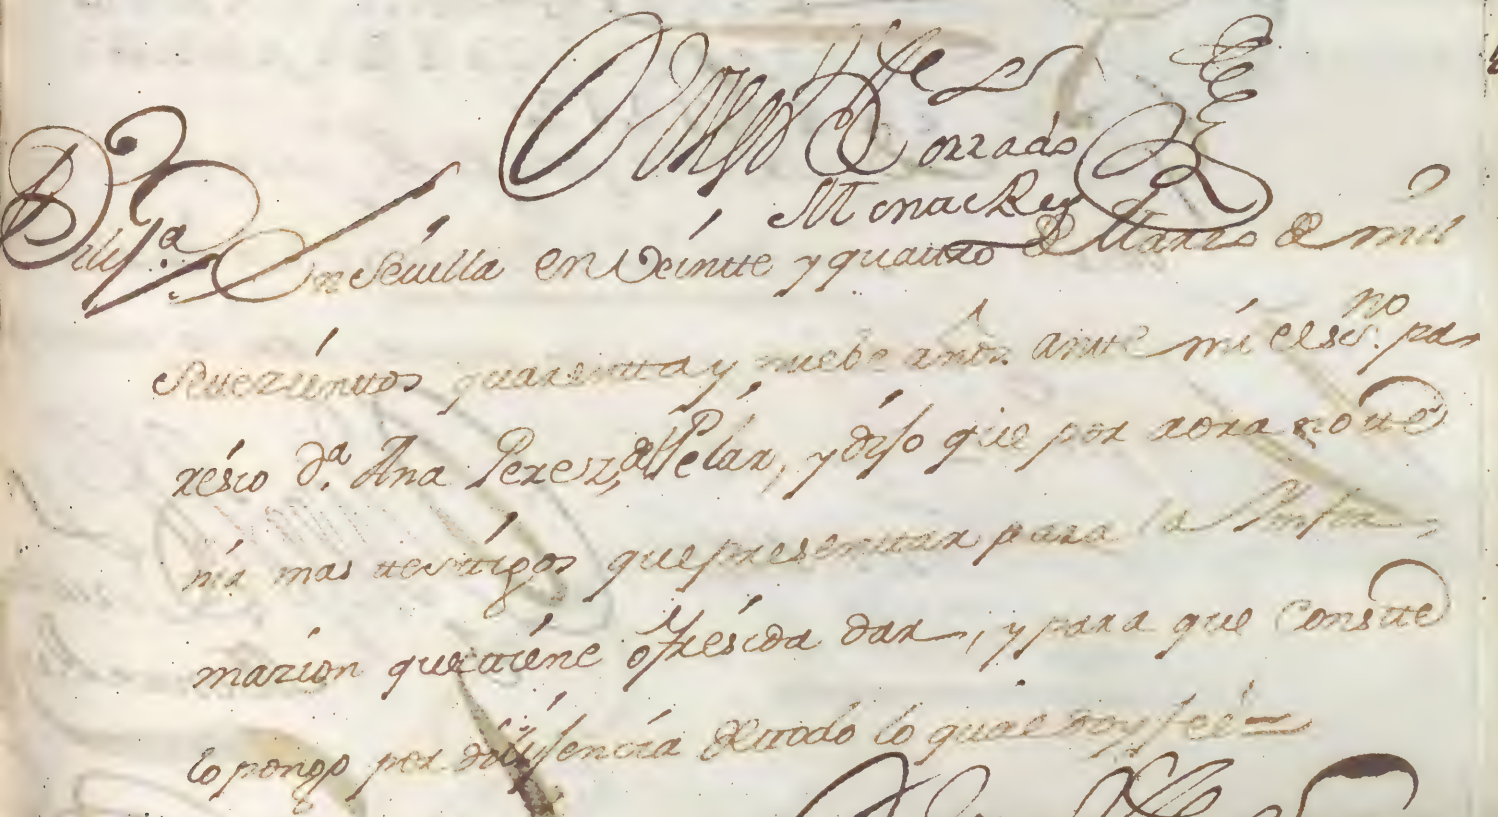 Corrado
Monarres
Dilix.ª En Sevilla en Veintte y quattro de Marzo de mil
settezienttos quarentta y nuebe años antte mi el ess.no pa
resio D.ª Ana Perez, del Pelar, y dijo que por aora no tte
nia mas ttesttigos que presenttar para la Ynfor
mazion que ttiene ofresida dar, y para que Constte
lo pongo por dilijencia de ttodo lo qual doy feé =